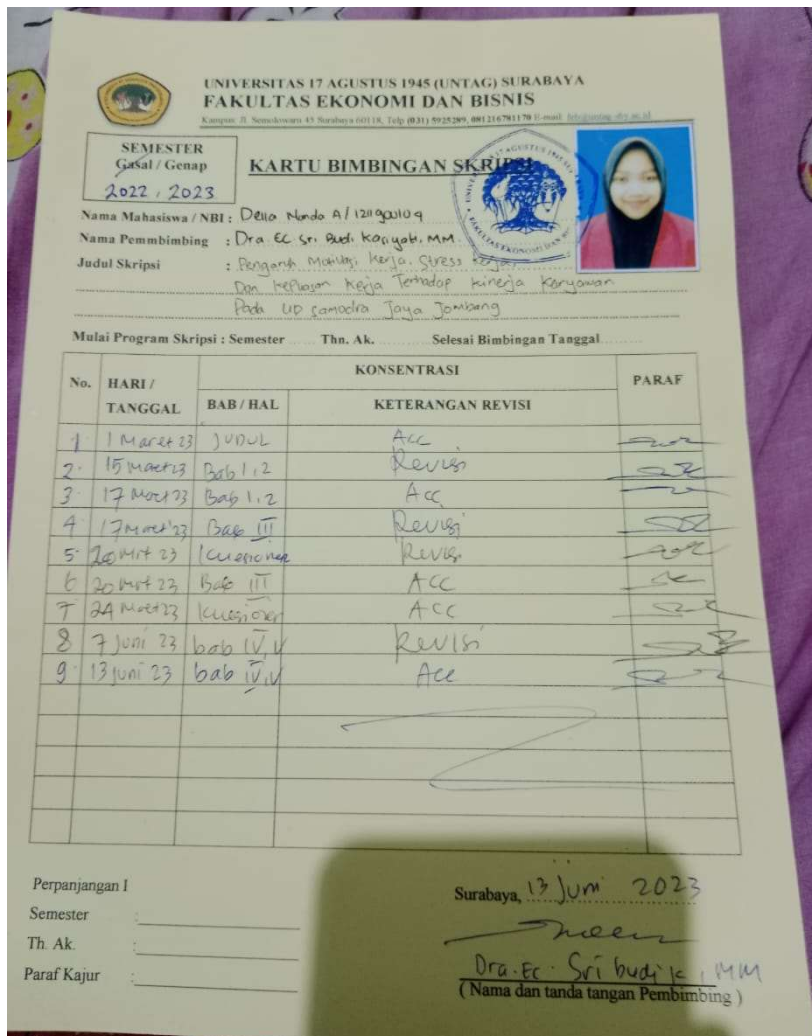 UNIVERSITAS 17 AGUSTUS 1945 (UNTAG) SURABAYA
FAKULTAS EKONOMI DAN BISNIS
Kampus: Jl. Semolowaru 45 Surabaya 60118, Telp (031) 5925289, 081216781170 E-mail:
SEMESTER
Gasal / Genap
2022 / 2023
KARTU BIMBINGAN SKRIPSI
Nama Mahasiswa / NBI : Della Nanda A / 1211900109
Nama Pemmbimbing : Dra. EC Sri Budi Kasiyati, MM.
Judul Skripsi : Pengaruh Motivasi Kerja, Stress Kerja
Dan Kepuasan Kerja Terhadap Kinerja Karyawan
Pada UD Samodra Jaya Jombang
Mulai Program Skripsi : Semester ...... Thn. Ak. .......... Selesai Bimbingan Tanggal ..........
No. HARI / TANGGAL KONSENTRASI PARAF
BAB / HAL KETERANGAN REVISI
1 1 Maret 23 JUDUL Acc
2. 15 Maret 23 Bab 1,2 Revisi
3. 17 Maret 23 Bab 1,2 Acc
4 17 Maret '23 Bab III Revisi
5. 20 Mrt 23 Kuesioner Revisi
6 20 Mrt 23 Bab III ACC
7 24 Maret 23 Kuesioner ACC
8 7 Juni 23 bab IV, V Revisi
9. 13 Juni 23 bab IV, V Acc
Perpanjangan I
Semester :
Th. Ak. :
Paraf Kajur :
Surabaya, 13 Juni 2023
Dra. Ec. Sri budi K, MM
( Nama dan tanda tangan Pembimbing )